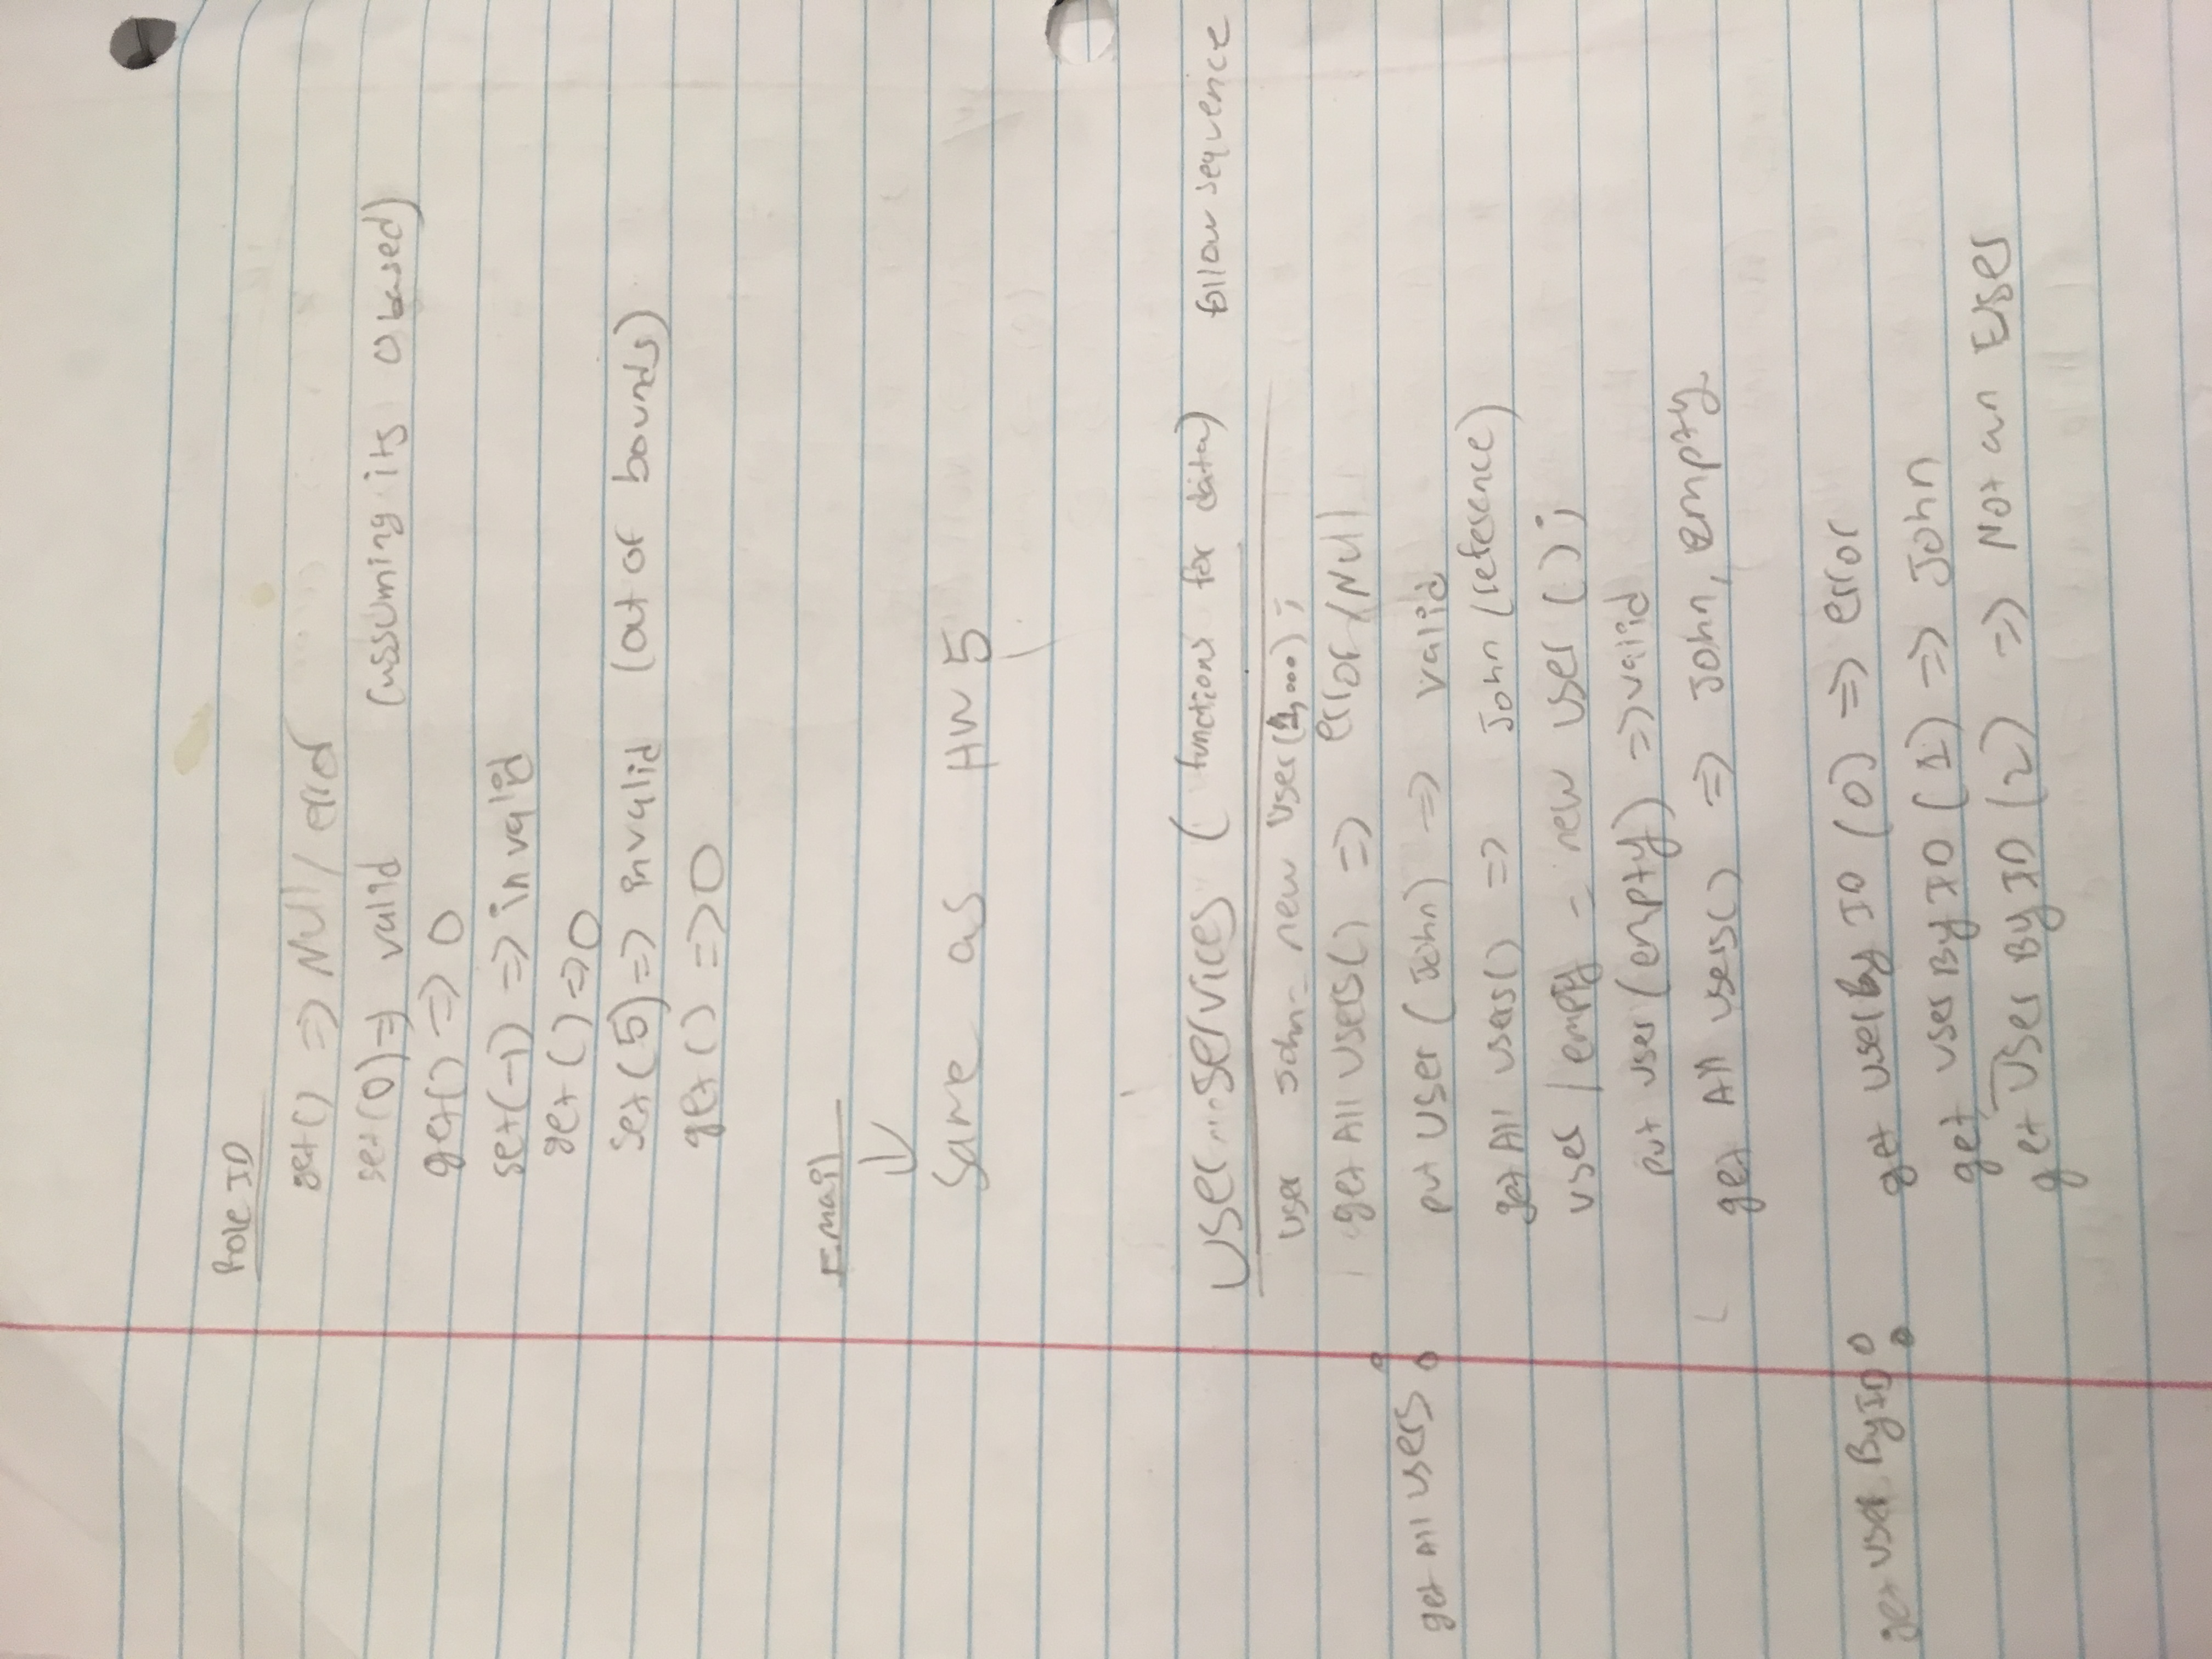 Role ID
get() => Null / error
set(0) => valid (assuming its 0 based)
get() => 0
set(-1) => invalid
get() => 0
set(5) => invalid (out of bounds)
get() => 0
Email
↓
Same as HW 5
User...services (functions for data) follow sequence
user John = new User(1,...);
get All users() => error/Null
get All users:
put User (John) => valid
get All users() => John (reference)
user / empty = new user ();
put user (empty) => valid
get All users() => John, empty
get User By ID:
get User By ID (0) => error
get User By ID (1) => John
get User By ID (2) => Not an User